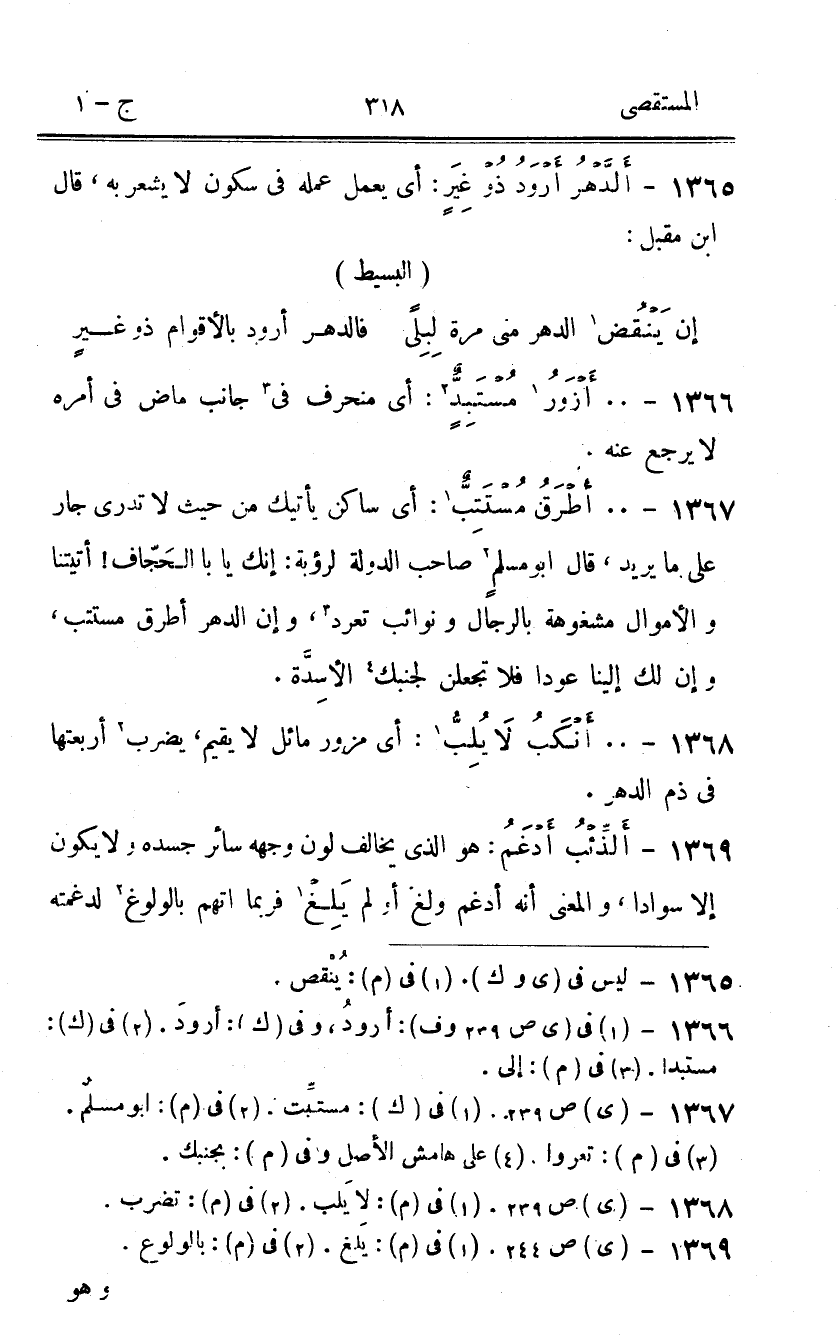 المستقصى ٣١٨ ج - ١
١٣٦٥ - أَلدَّهْرُ أَرْوَدُ ذُوْ غِيَرٍ : أى يعمل عمله فى سكون لا يشعر به ، قال
ابن مقبل :
( البسيط )
إن يَنْقُض١ الدهر منى مرة لِبِلًى فالدهـر أرود بالأقوام ذو غـــيرٍ
١٣٦٦ - ٠٠ أَزْوَرُ١ مُسْتَبِدٌّ٢ : أى منحرف فى٣ جانب ماض فى أمره
لا يرجع عنه .
١٣٦٧ - ٠٠ أَطْرَقُ مُسْتَتِبٌّ١ : أى ساكن يأتيك من حيث لا تدرى جار
على ما يريد ، قال ابو مسلمٍ٢ صاحب الدولة لرؤبة : إنك يا با الـحَجّاف ! أتيتنا
و الأموال مشفوهة بالرجال و نوائب تعرد٣ ، و إن الدهر أطرق مستتب ،
و إن لك إلينا عودا فلا تجعلن لجنبك٤ الأسِدَّة .
١٣٦٨ - ٠٠ أَنْكَبُ لَا يُلِبُّ١ : أى مزور مائل لا يقيم ، يضرب٢ أربعتها
فى ذم الدهر .
١٣٦٩ - أَلذِّئْبُ أَدْغَمُ : هو الذى يخالف لون وجهه سائر جسده و لا يكون
إلا سوادا ، و المعنى أنه أدغم ولغ أو لم يَلِـغْ١ فربما اتهم بالولوغ٢ لدغمته
١٣٦٥ - ليس فى (ى و ك) . (١) فى (م) : يُنْقص .
١٣٦٦ - (١) فى (ى ص ٢٣٩ وف) : أرودُ ، و فى (ك) : أرودَ . (٢) فى (ك) :
مستبدا . (٣) فى (م) : إلى .
١٣٦٧ - (ى) ص ٢٣٩ . (١) فى (ك) : مستبِّت . (٢) فى (م) : ابو مسلمُ .
(٣) فى (م) : تعروا . (٤) على هامش الأصل و فى (م) : بجنبك .
١٣٦٨ - (ى) ص ٢٣٩ . (١) فى (م) : لا يَلب . (٢) فى (م) : تضرب .
١٣٦٩ - (ى) ص ٢٤٤ . (١) فى (م) : يَلغ . (٢) فى (م) : بالولوع .
و هو